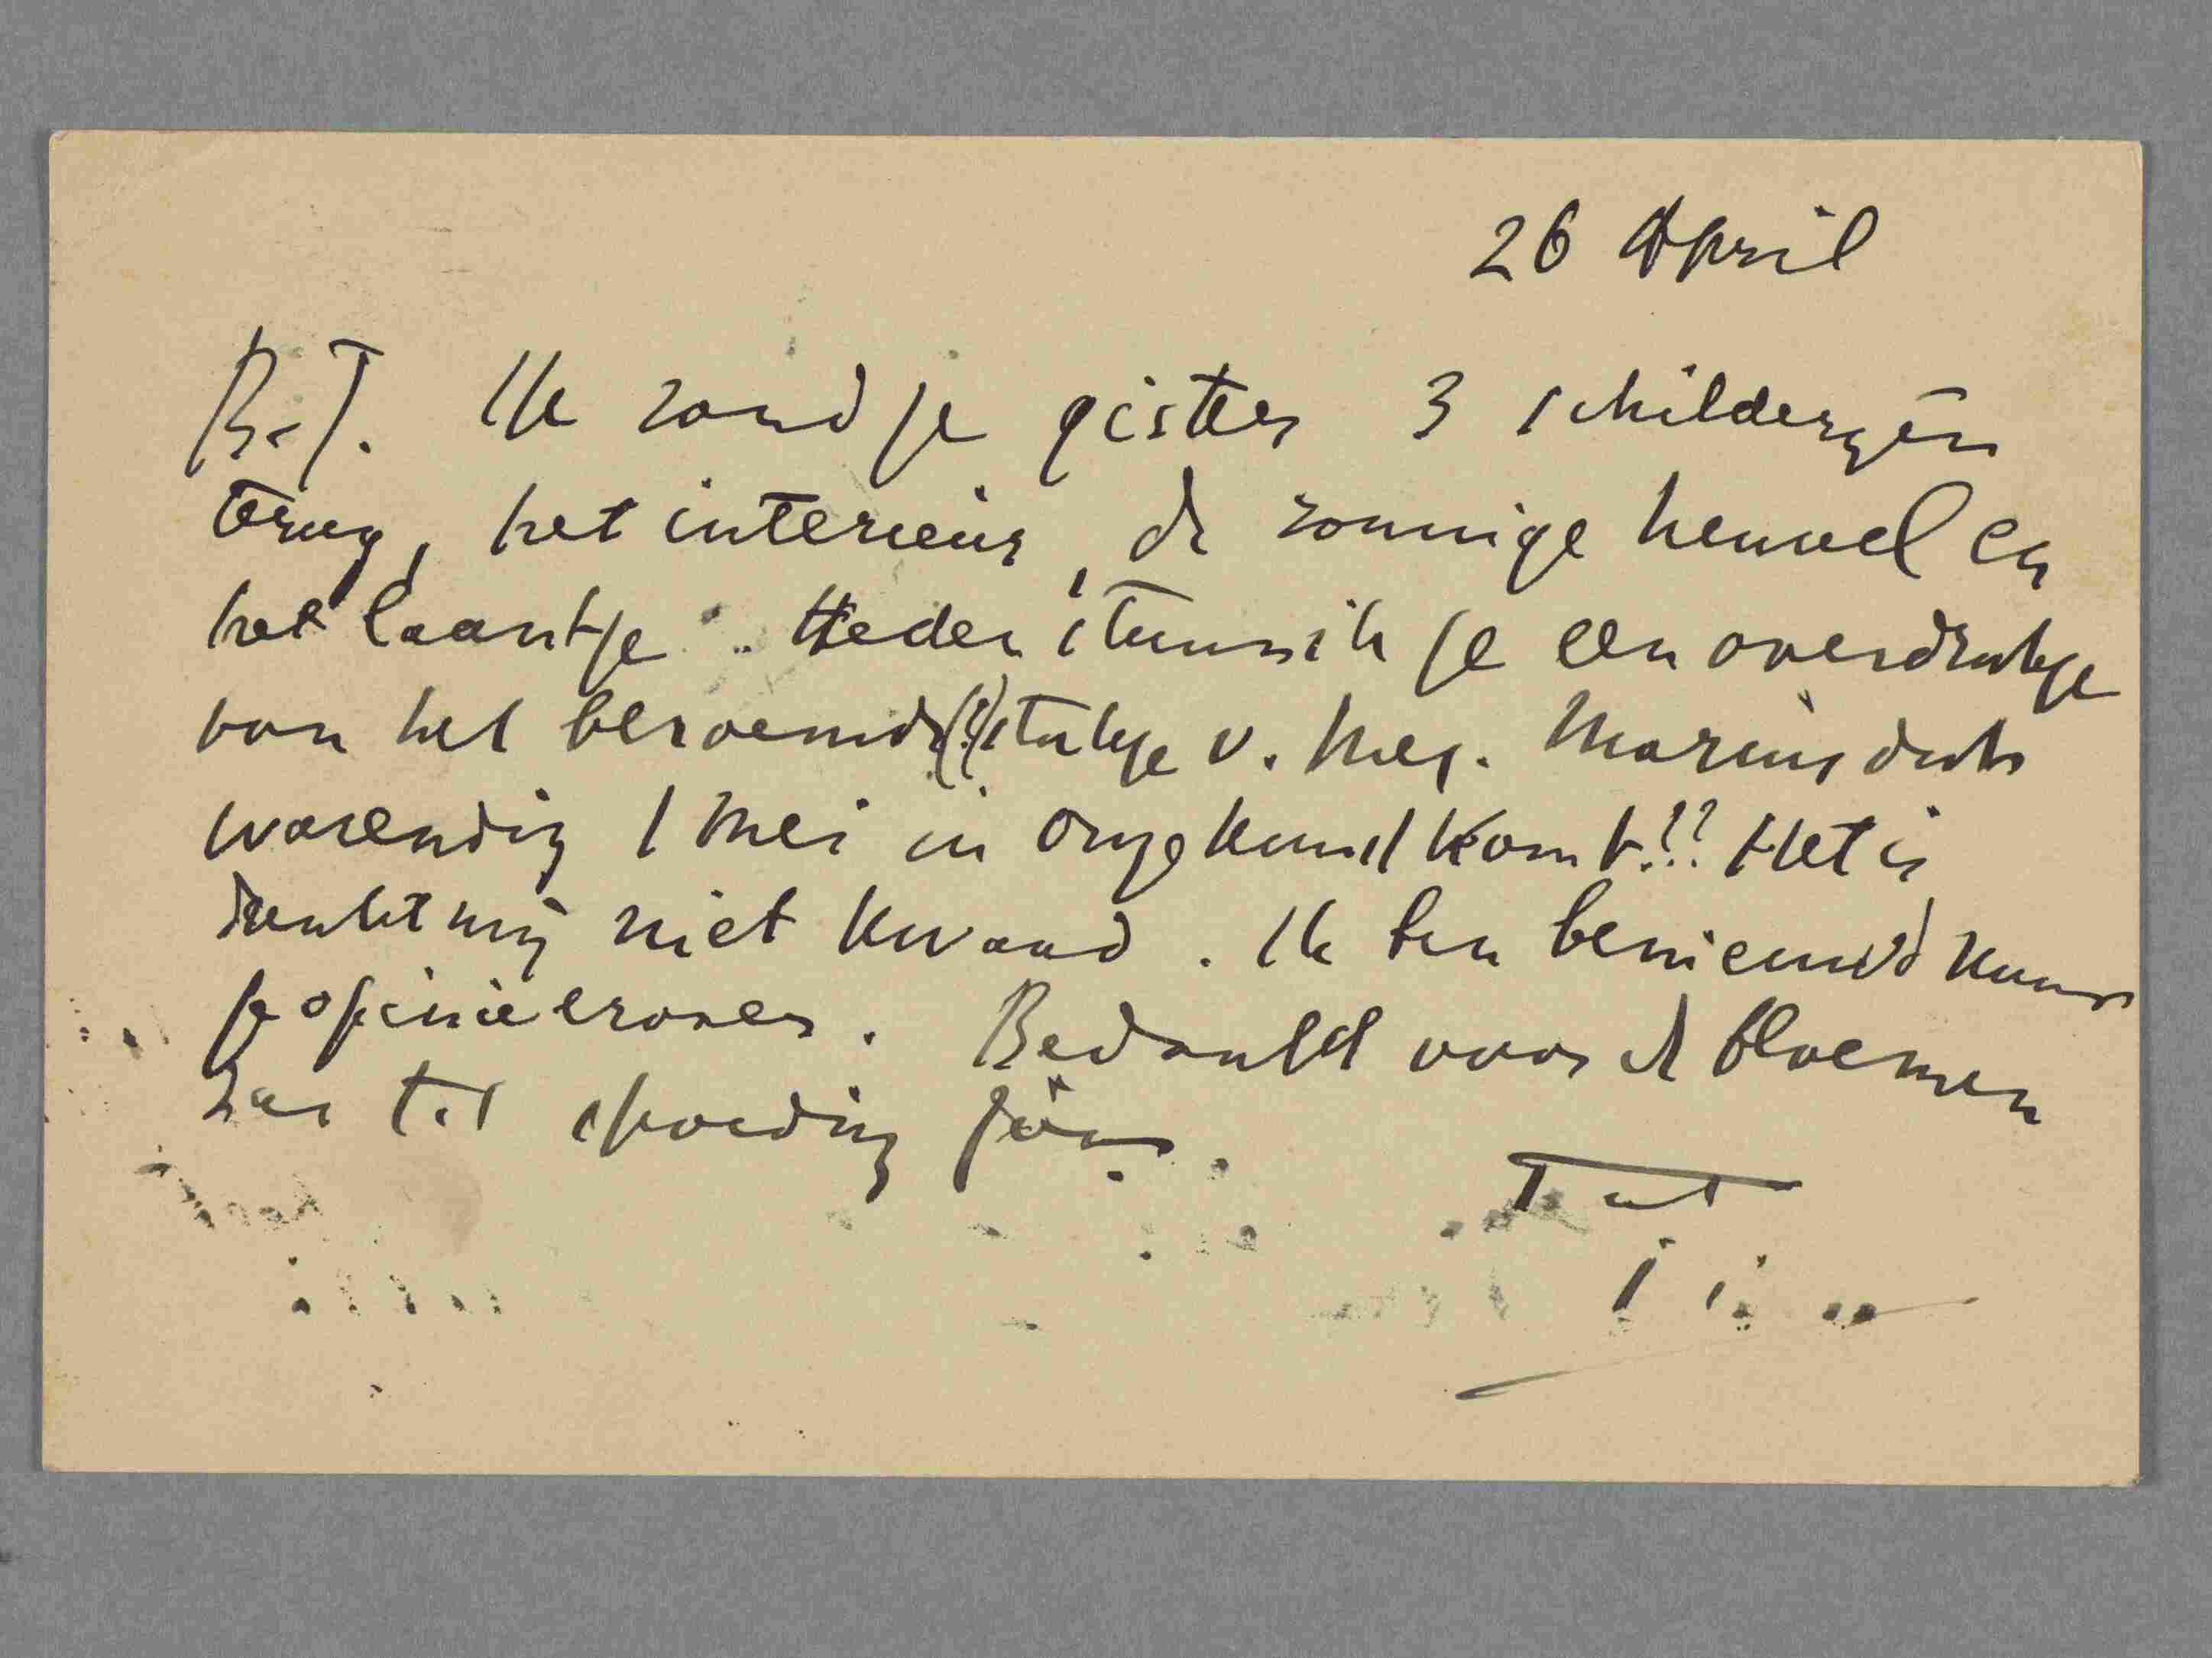 26 April
B.T. Ik zond je gister 3 schilderyen
terug, het interieur, de zonnige heuvel en
het laantje. Heden stuur ik je een overdrukje
van het beroemde (?) stukje v. Mej. Marius dat
waarendig 1 Mei in Onze Kunst komt!! Het is
dunkt mij niet kwaad. Ik ben benieuwd naar
je opinie erover. Bedankt voor de bloemen
en tot spoedig
Tut